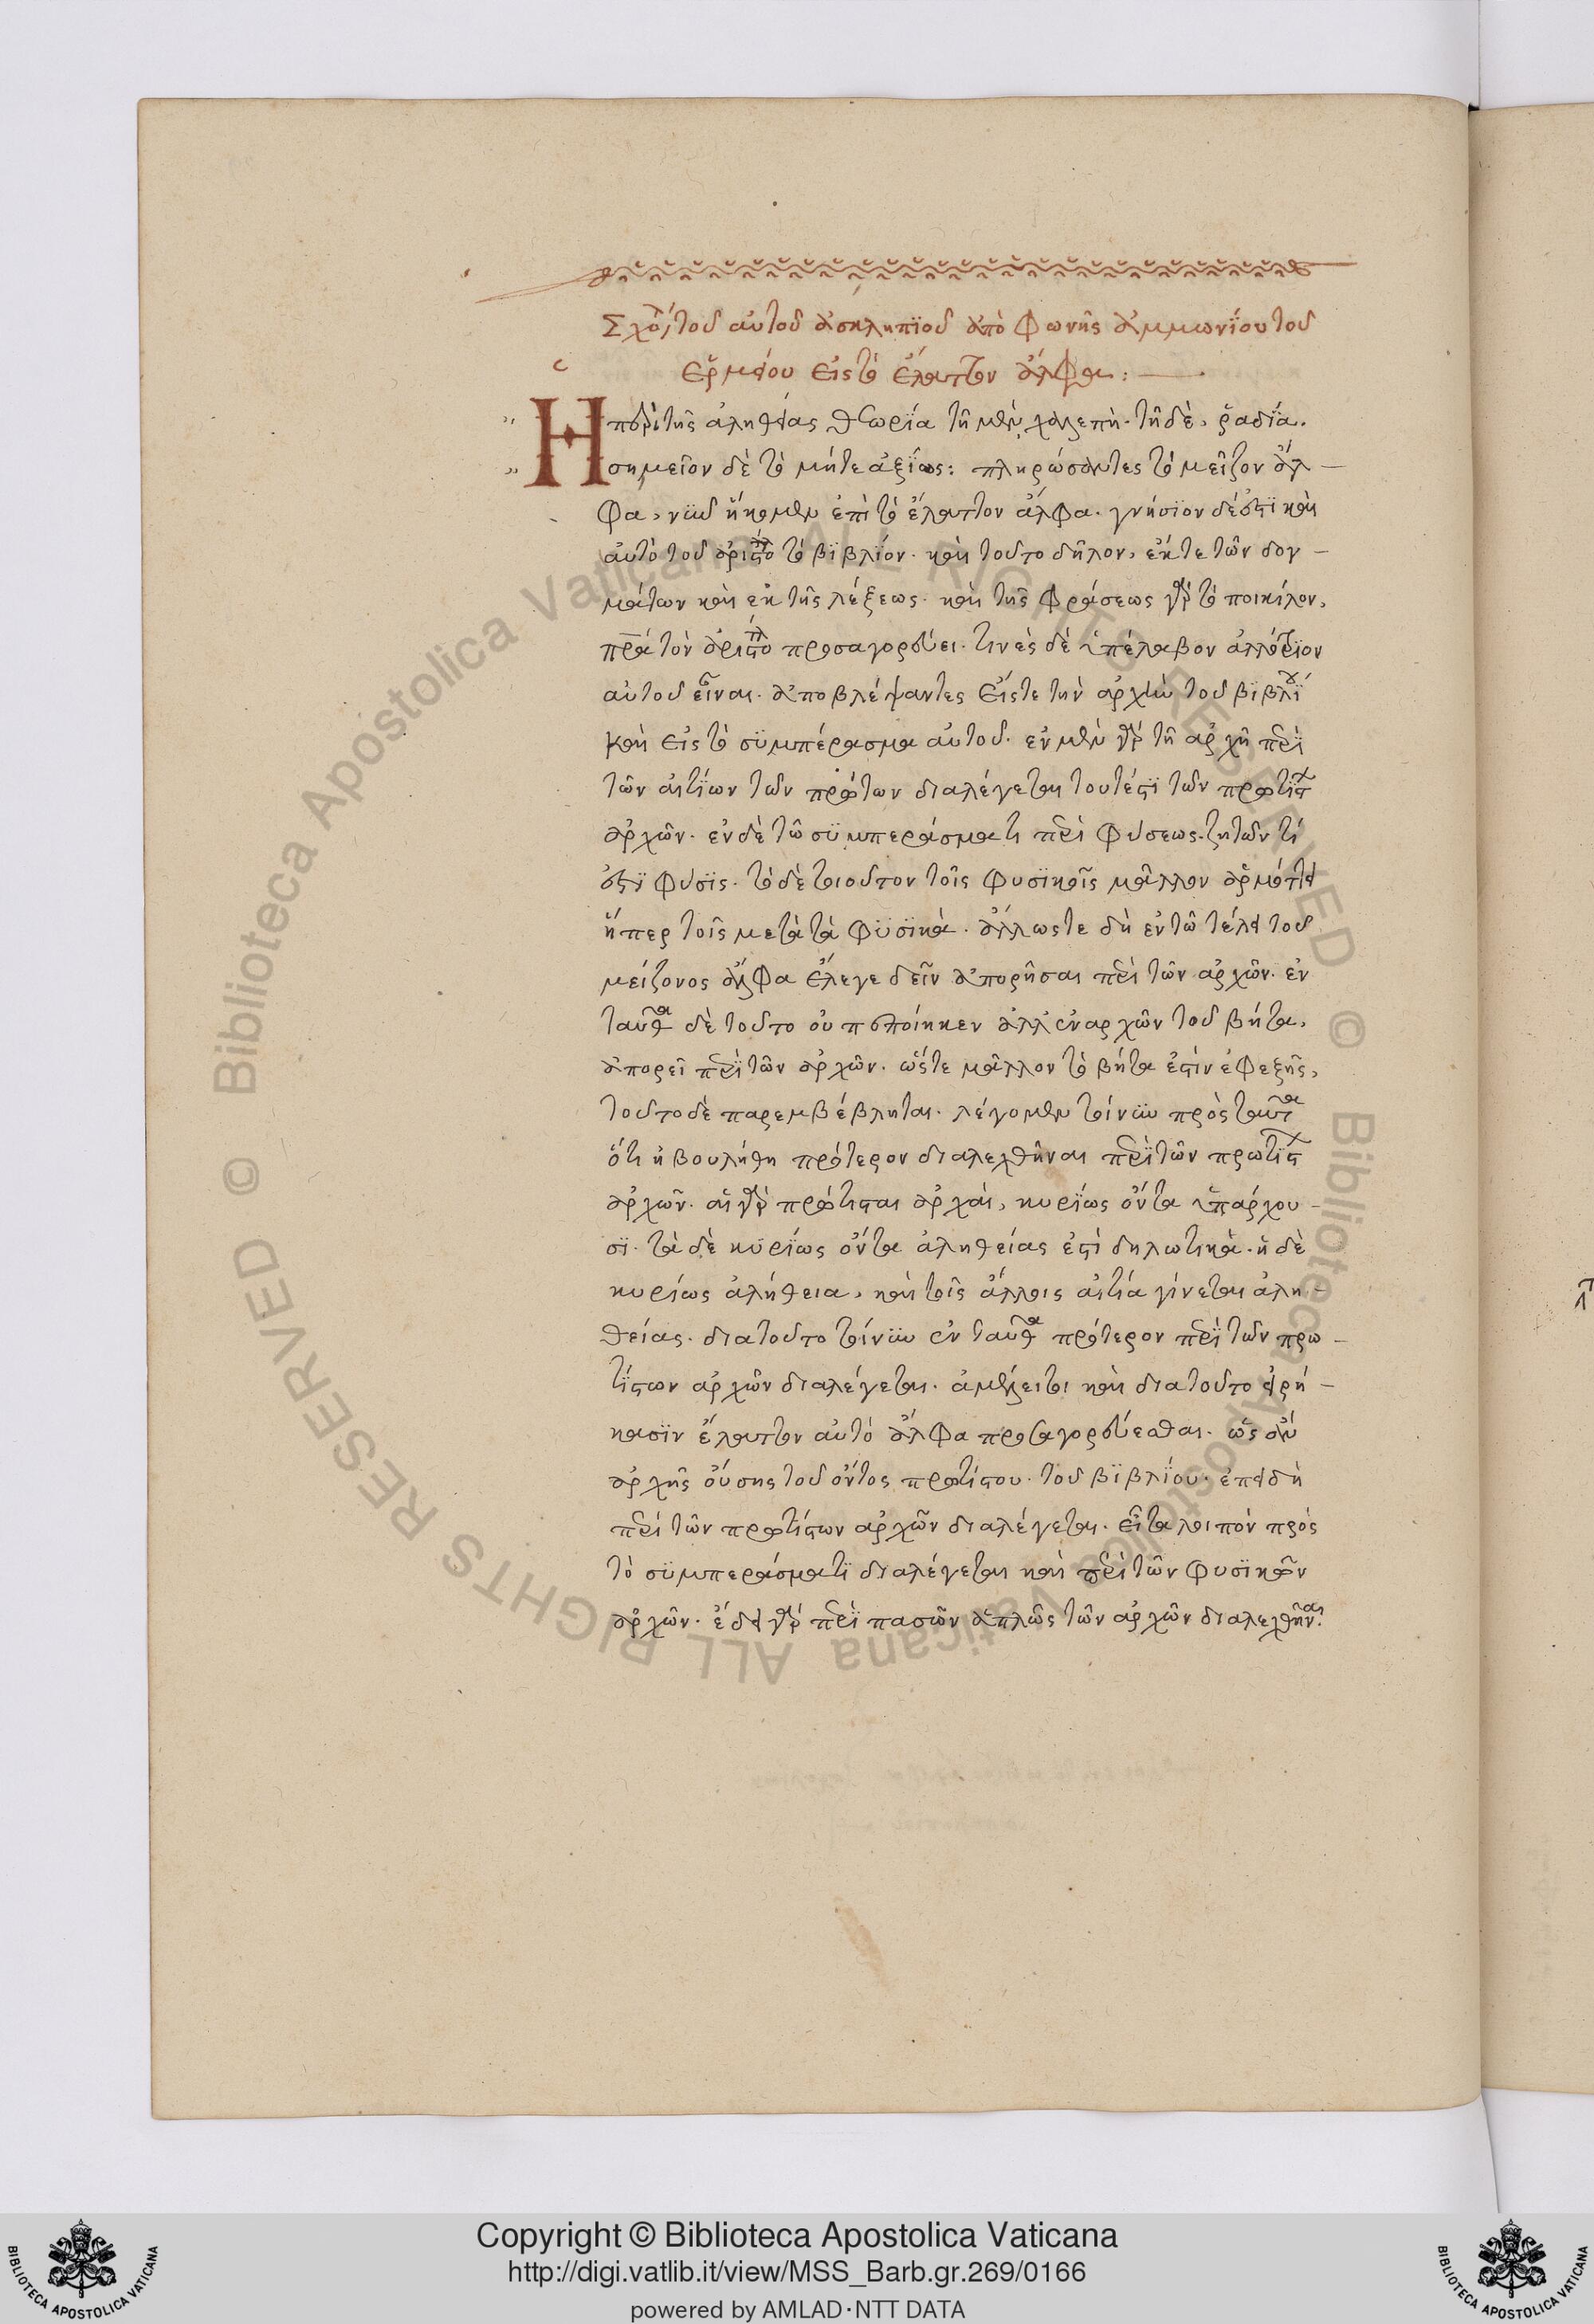 Σχό τοῦ αὐτοῦ ἀσκληπϊοῦ ἀπὸ φωνῆς ἀμμωνΐου τοῦ
ἑρμείου εἰς τὸ ἔλαττον ἄλφα: —
Η περὶ τῆς ἀληθείας θεωρΐα τῆ μὲν χαλεπὴ· τῆ δὲ, ῥαδΐα.
σημεῖον δὲ τὸ μήτε ἀξΐως: πληρώσαντες τὸ μεῖζον ἄλ –
φα, νῦν ἥκομεν ἐπὶ τὸ ἔλαττον ἄλφα. γνήσϊον δέ ἐστϊ καὶ
αὐτὸ τοῦ ἀριστο τὸ βϊβλϊον. καὶ τοῦτο δῆλον, ἐκ τε τῶν δογ –
μάτων καὶ ἐκ τῆς λέξεως. καὶ τῆς φράσεως γὰρ τὸ ποικίλον,
πρα τὸν ἀριστο προσαγορεύει. τινὲς δὲ ὑπέλαβον ἀλλότρϊον
αὐτοῦ εἶναι. ἀποβλέψαντες εἴς τε τὴν ἀρχὴν τοῦ βϊβλΐου
καὶ εἰς τὸ σϋμπέρασμα αὐτοῦ. ἐν μὲν γὰρ τῆ ἀρχῆ περὶ
τῶν αἰτΐων τῶν πρώτων διαλέγεται τουτέστϊ τῶν πρωτϊστ
ἀρχῶν. ἐν δὲ τῶ σϋμπεράσματι περὶ φύσεως. ζητῶν τί
ἐστϊ φύσϊς. τὸ δὲ τοιοῦτον τοῖς φυσϊκοῖς μᾶλλον ἁρμόττει
ἤπερ τοῖς μετὰ τὰ φϋσϊκὰ. ἄλλως τε δὴ ἐν τῶ τέλει τοῦ
μείζονος ἄλφα ἔλεγε δεῖν ἀπορῆσαι περὶ τῶν ἀρχῶν. ἐν
ταῦθα δὲ τοῦτο οὐ πεποίηκεν ἀλλ' ἐν ἀρχῶν τοῦ βήτα,
ἀπορεῖ περὶ τῶν ἀρχῶν. ὥστε μᾶλλον τὸ βήτα ἐστὶν ἐφεξῆς,
τοῦτο δὲ παρεμβέβληται. λέγομεν τοίνυν πρὸς ταῦτα
ὅτι ἠβουλήθη πρότερον διαλεχθῆναι περὶ τῶν πρωτϊστ
ἀρχῶν. αἱ γὰρ πρώτισται ἀρχάι, κυρΐως ὄντα ὑπάρχου –
σϊ. τὰ δὲ κϋρϊως ὄντα ἀληθείας ἐστὶ δηλωτικὰ. ἡ δὲ
κυρίως ἀλήθεια, καὶ τοῖς ἄλλοις αἰτία γίνεται ἀλη –
θείας. διατοῦτο τοίνυν ἐν ταῦθα πρότερον περὶ τῶν πρω –
τΐστων ἀρχῶν διαλέγεται. ἀμέλειτοι καὶ διατοῦτο εἰρή –
κασϊν ἔλαττον αὐτὸ ἄλφα προσαγορεύεσθαι. ὡς ἂν
ἀρχῆς οὔσης τοῦ ὄντος πρωτίστου. τοῦ βϊβλΐου. ἐπειδὴ
περὶ τῶν πρωτίστων ἀρχῶν διαλέγεται. εἶτα λοιπὸν πρὸς
τὸ σϋμπεράσματϊ διαλέγεται καὶ περὶ τῶν φυσϊκῶν
ἀρχῶν. ἔδει γὰρ περὶ πασῶν ἁπλῶς τῶν ἀρχῶν διαλεχθῆναι
© Biblioteca Apostolica Vaticana ALL RIGHTS RESERVED © Biblioteca Apostolica Vaticana ALL RIGHTS RESERVED
Copyright © Biblioteca Apostolica Vaticana
http://digi.vatlib.it/view/MSS_Barb.gr.269/0166
powered by AMLAD·NTT DATA
BIBLIOTECA APOSTOLICA VATICANA
BIBLIOTECA APOSTOLICA VATICANA